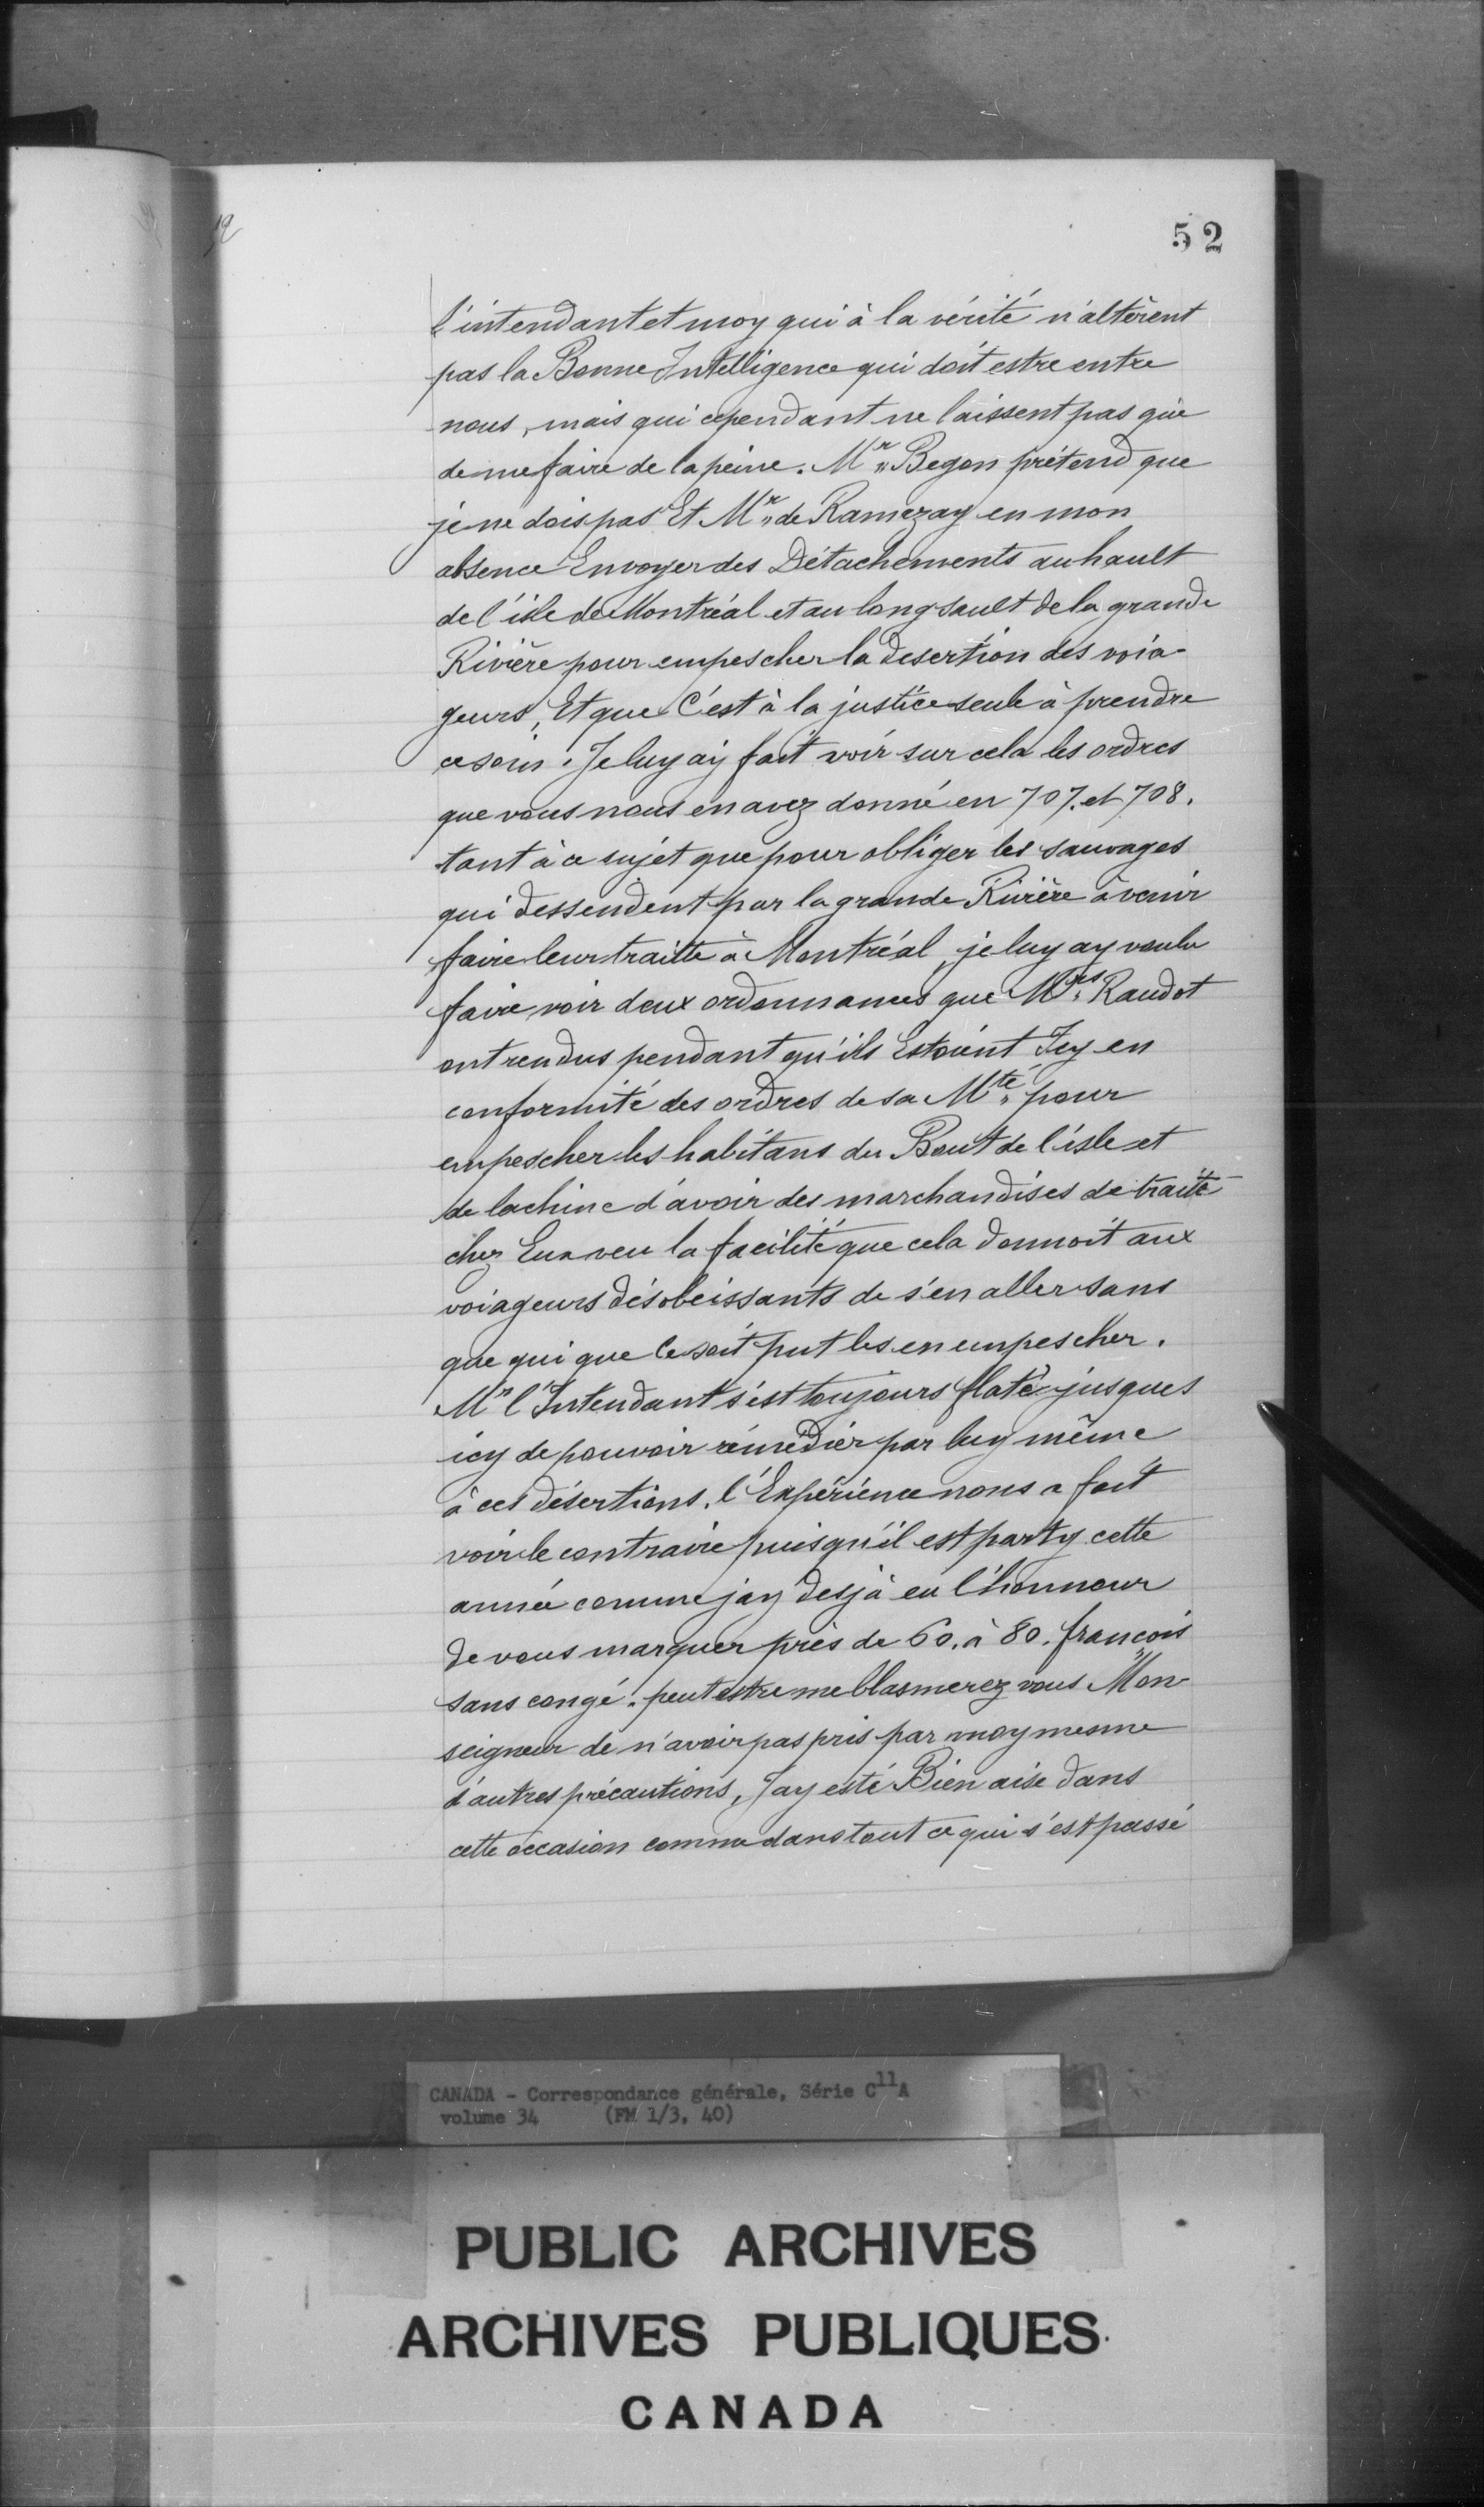 52
l'intendant et moy qui à la vérité n'altèrent
pas la Bonne Intelligence qui doit estre entre
nous, mais qui cependant ne laissent pas que
de me faire de la peine. Mr. Begon prétend que
je ne dois pas Et Mr. de Ramezay en mon
absence Envoyer des Détachements au hault
de l'isle de Montréal et au long sault de la grande
Rivière pour empescher la désertion des voia-
geurs, Et que C'est à la justice seule à prendre
ce soin. Je luy aÿ fait voir sur cela les ordres
que vous nous en avez donné en 707. et 708.
tant à ce sujet que pour obliger les sauvages
qui dessendent par la grande Rivière à venir
faire leur traitte à Montréal, je luy ay voulu
faire voir deux ordonnances que Mrs. Raudot
ont rendus pendant qu'ils Estoient Icy en
conformité des ordres de sa Mté. pour
empescher les habitans du Bout de l'isle et
de lachine d'avoir des marchandises de traite
chez Eux veu la facilité que cela donnoit aux
voiageurs désobeissants de s'en aller sans
que qui que Ce soit put les en empescher.
Mr. l'Intendant s'est toujours flaté jusques
icy de pouvoir rémédier par luy même
à ces désertions. l'Expérience nous a fait
voir le contraire puisqu'il est party cette
année comme jay desjà eu l'honneur
de vous marquer près de 60. à 80. françois
sans congé. peut estre me blasmerez vous Mon-
seigneur de n'avoir pas pris par moy mesme
d'autres précautions, Jay esté Bien aise dans
cette occasion comme dans tout ce qui s'est passé
CANADA - Correspondance générale, Série C11A
volume 34 (FM 1/3, 40)
PUBLIC ARCHIVES
ARCHIVES PUBLIQUES
CANADA